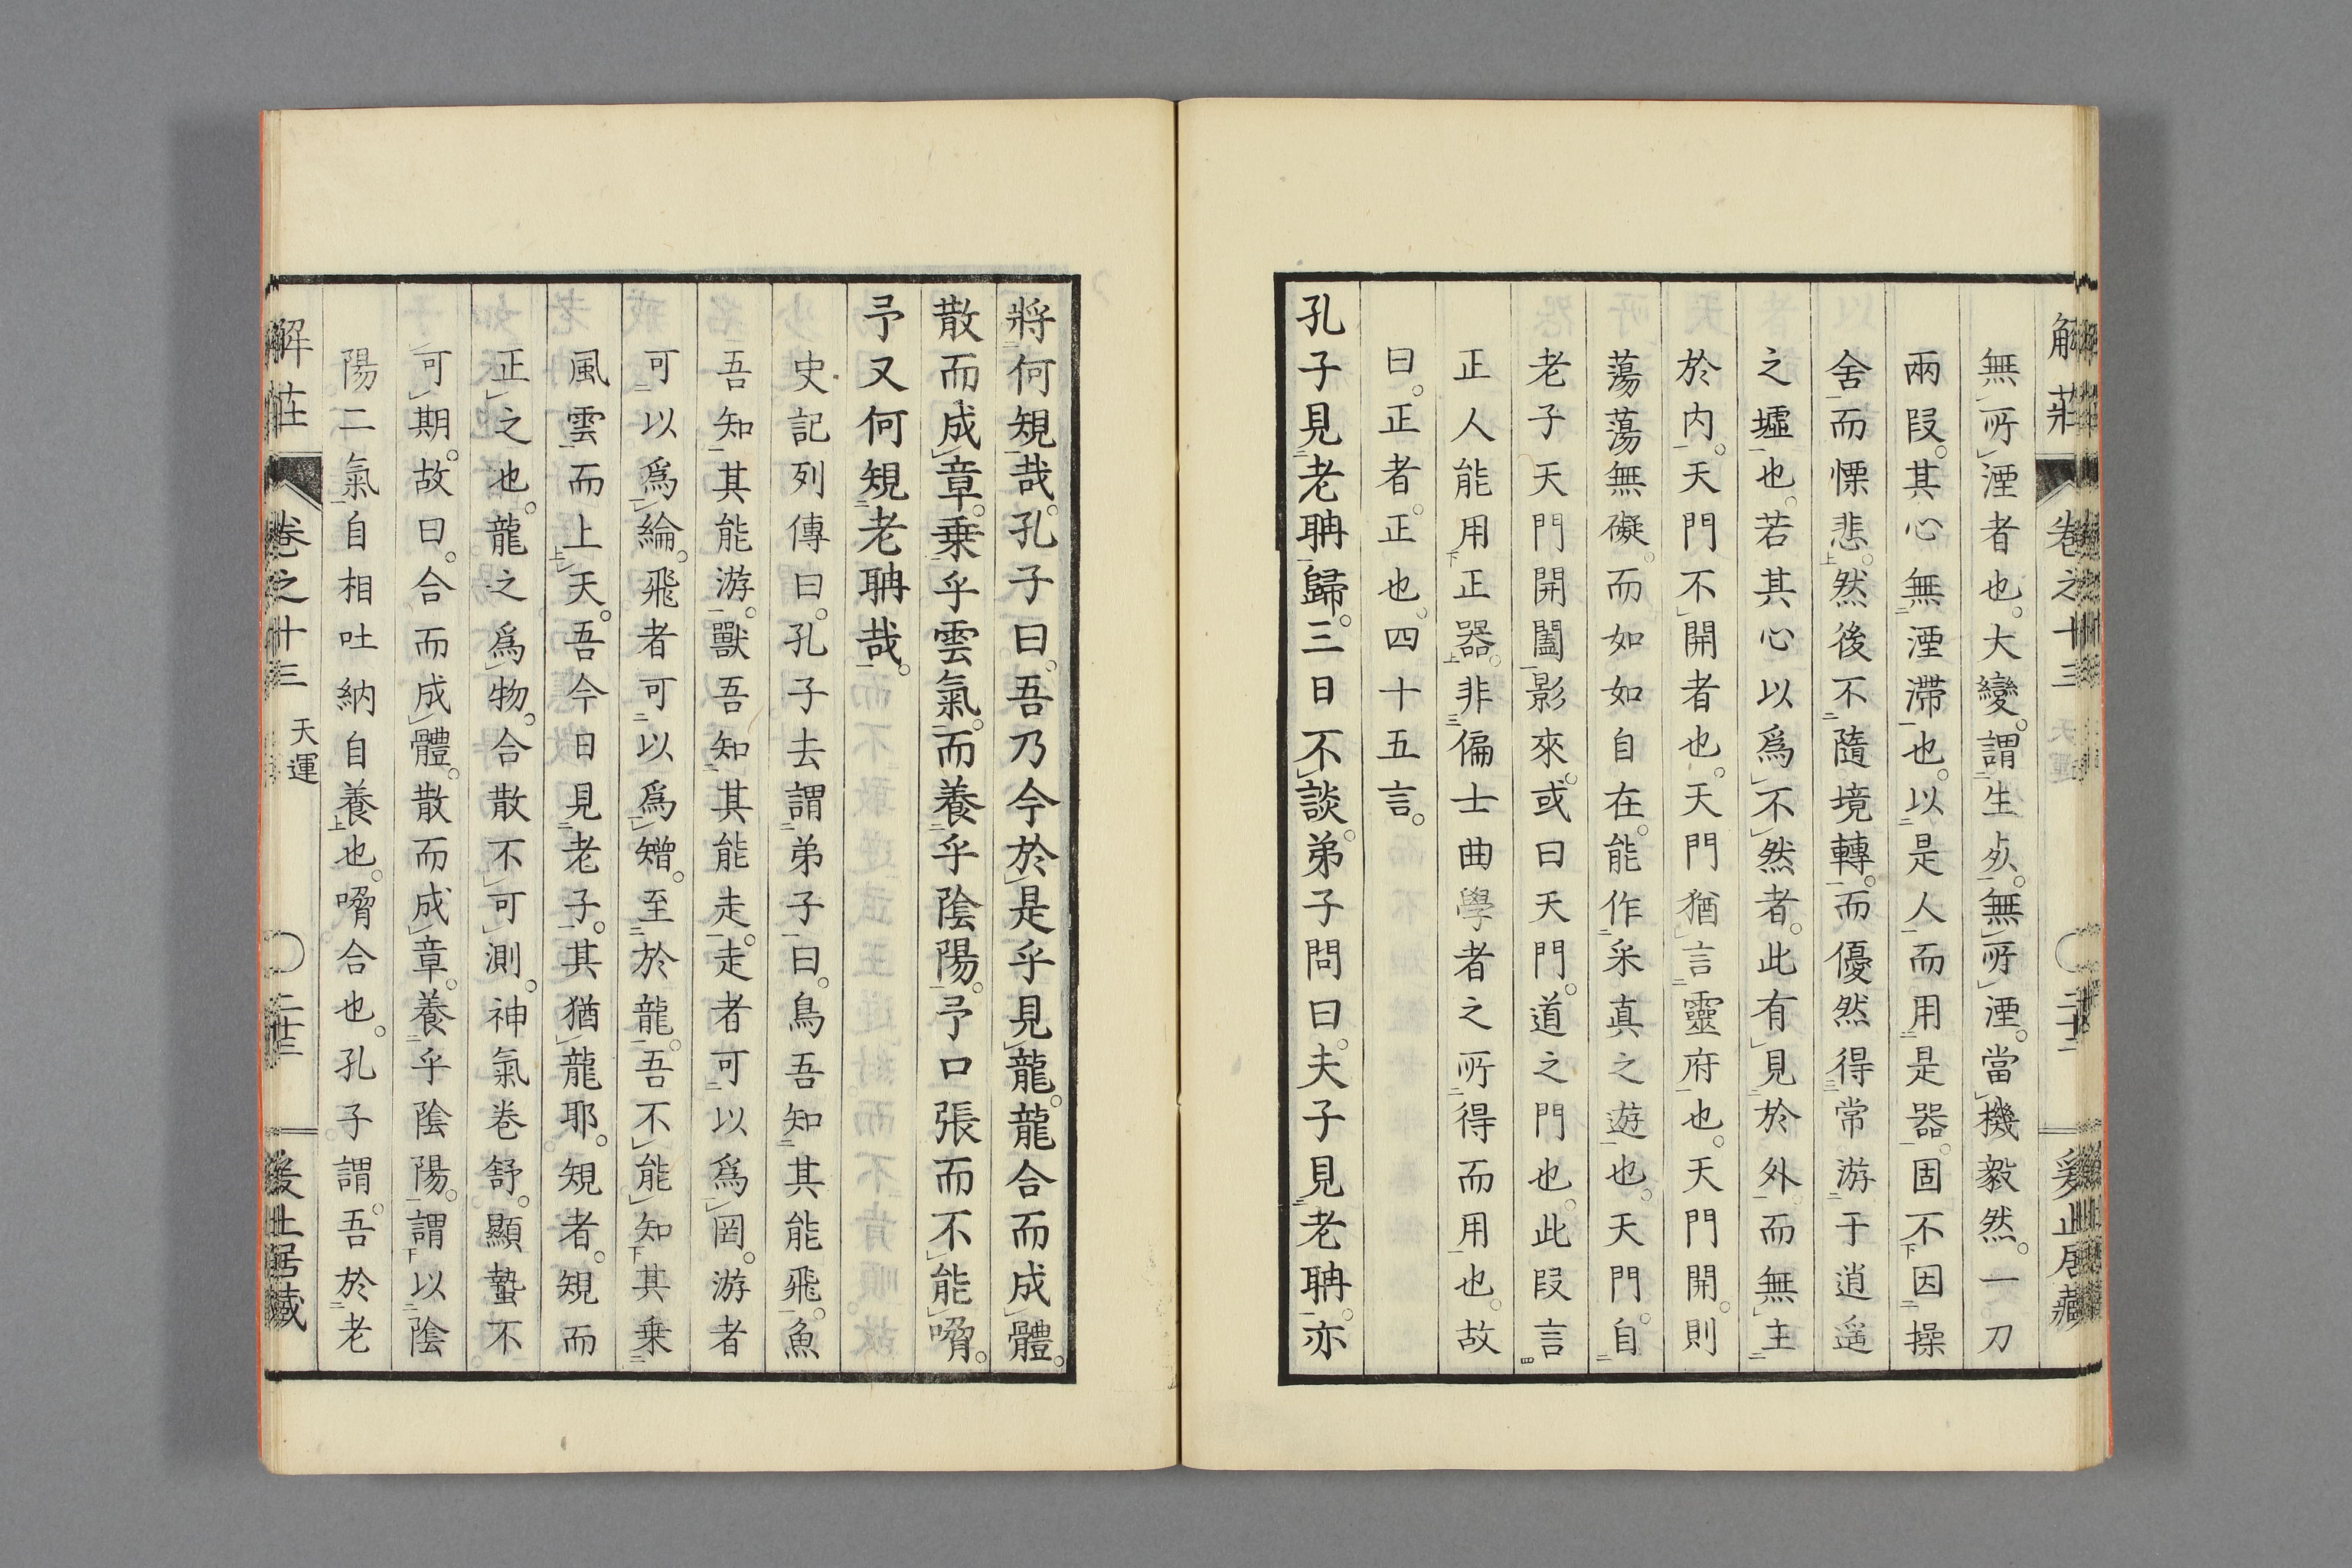 解莊 卷之十三 天運 二十二 爰止居藏
無所湮者也。大變。謂生死。無所湮。當機毅然。一刀
兩段。其心無湮滯也。以是人而用是器。固不因操
舍而慄悲。然後不隨境轉。而優然得常游于逍遥
之墟也。若其心以爲不然者。此有見於外。而無主
於内。天門不開者也。天門猶言靈府也。天門開。則
蕩蕩無礙。而如如自在。能作采真之遊也。天門。自
老子天門開闔影來。或曰天門。道之門也。此段言
正人能用正器。非偏士曲學者之所得而用也。故
曰。正者。正也。四十五言。
孔子見老聃歸。三日不談。弟子問曰。夫子見老聃。亦
將何規哉。孔子曰。吾乃今於是乎見龍。龍合而成體。
散而成章。乗乎雲氣。而養乎陰陽。予口張而不能嗋。
予又何規老聃哉。
史記列傳曰。孔子去謂弟子曰。鳥吾知其能飛。魚
吾知其能游。獸吾知其能走。走者可以爲罔。游者
可以爲綸。飛者可以爲矰。至於龍。吾不能知其乗
風雲而上天。吾今日見老子。其猶龍耶。規者。規而
正之也。龍之爲物。合散不可測。神氣卷舒。顯蟄不
可期。故曰。合而成體。散而成章。養乎陰陽。謂以陰
陽二氣自相吐納自養也。嗋合也。孔子謂。吾於老
解莊 卷之十三 天運 二十三 爰止居藏